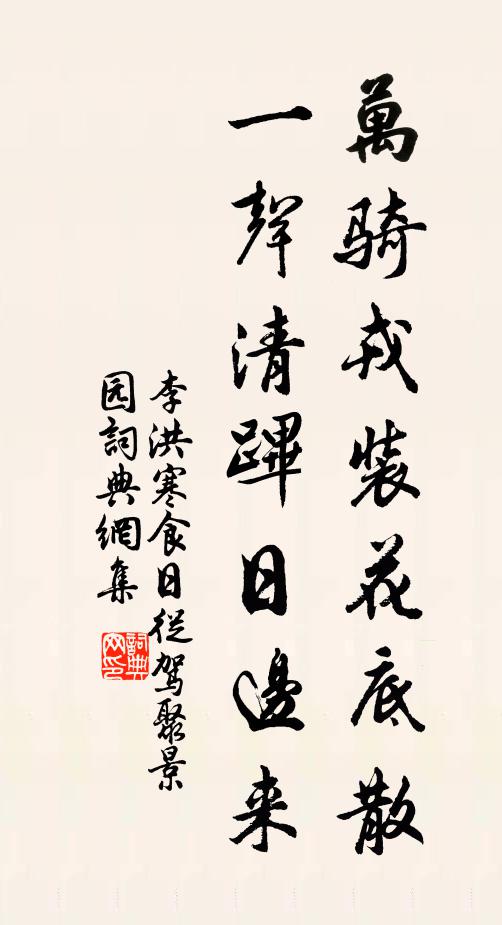 萬騎戎裝花底散
一聲清蹕日邊来
李洪寒食日從駕聚景
园詞典網集
詞典網印